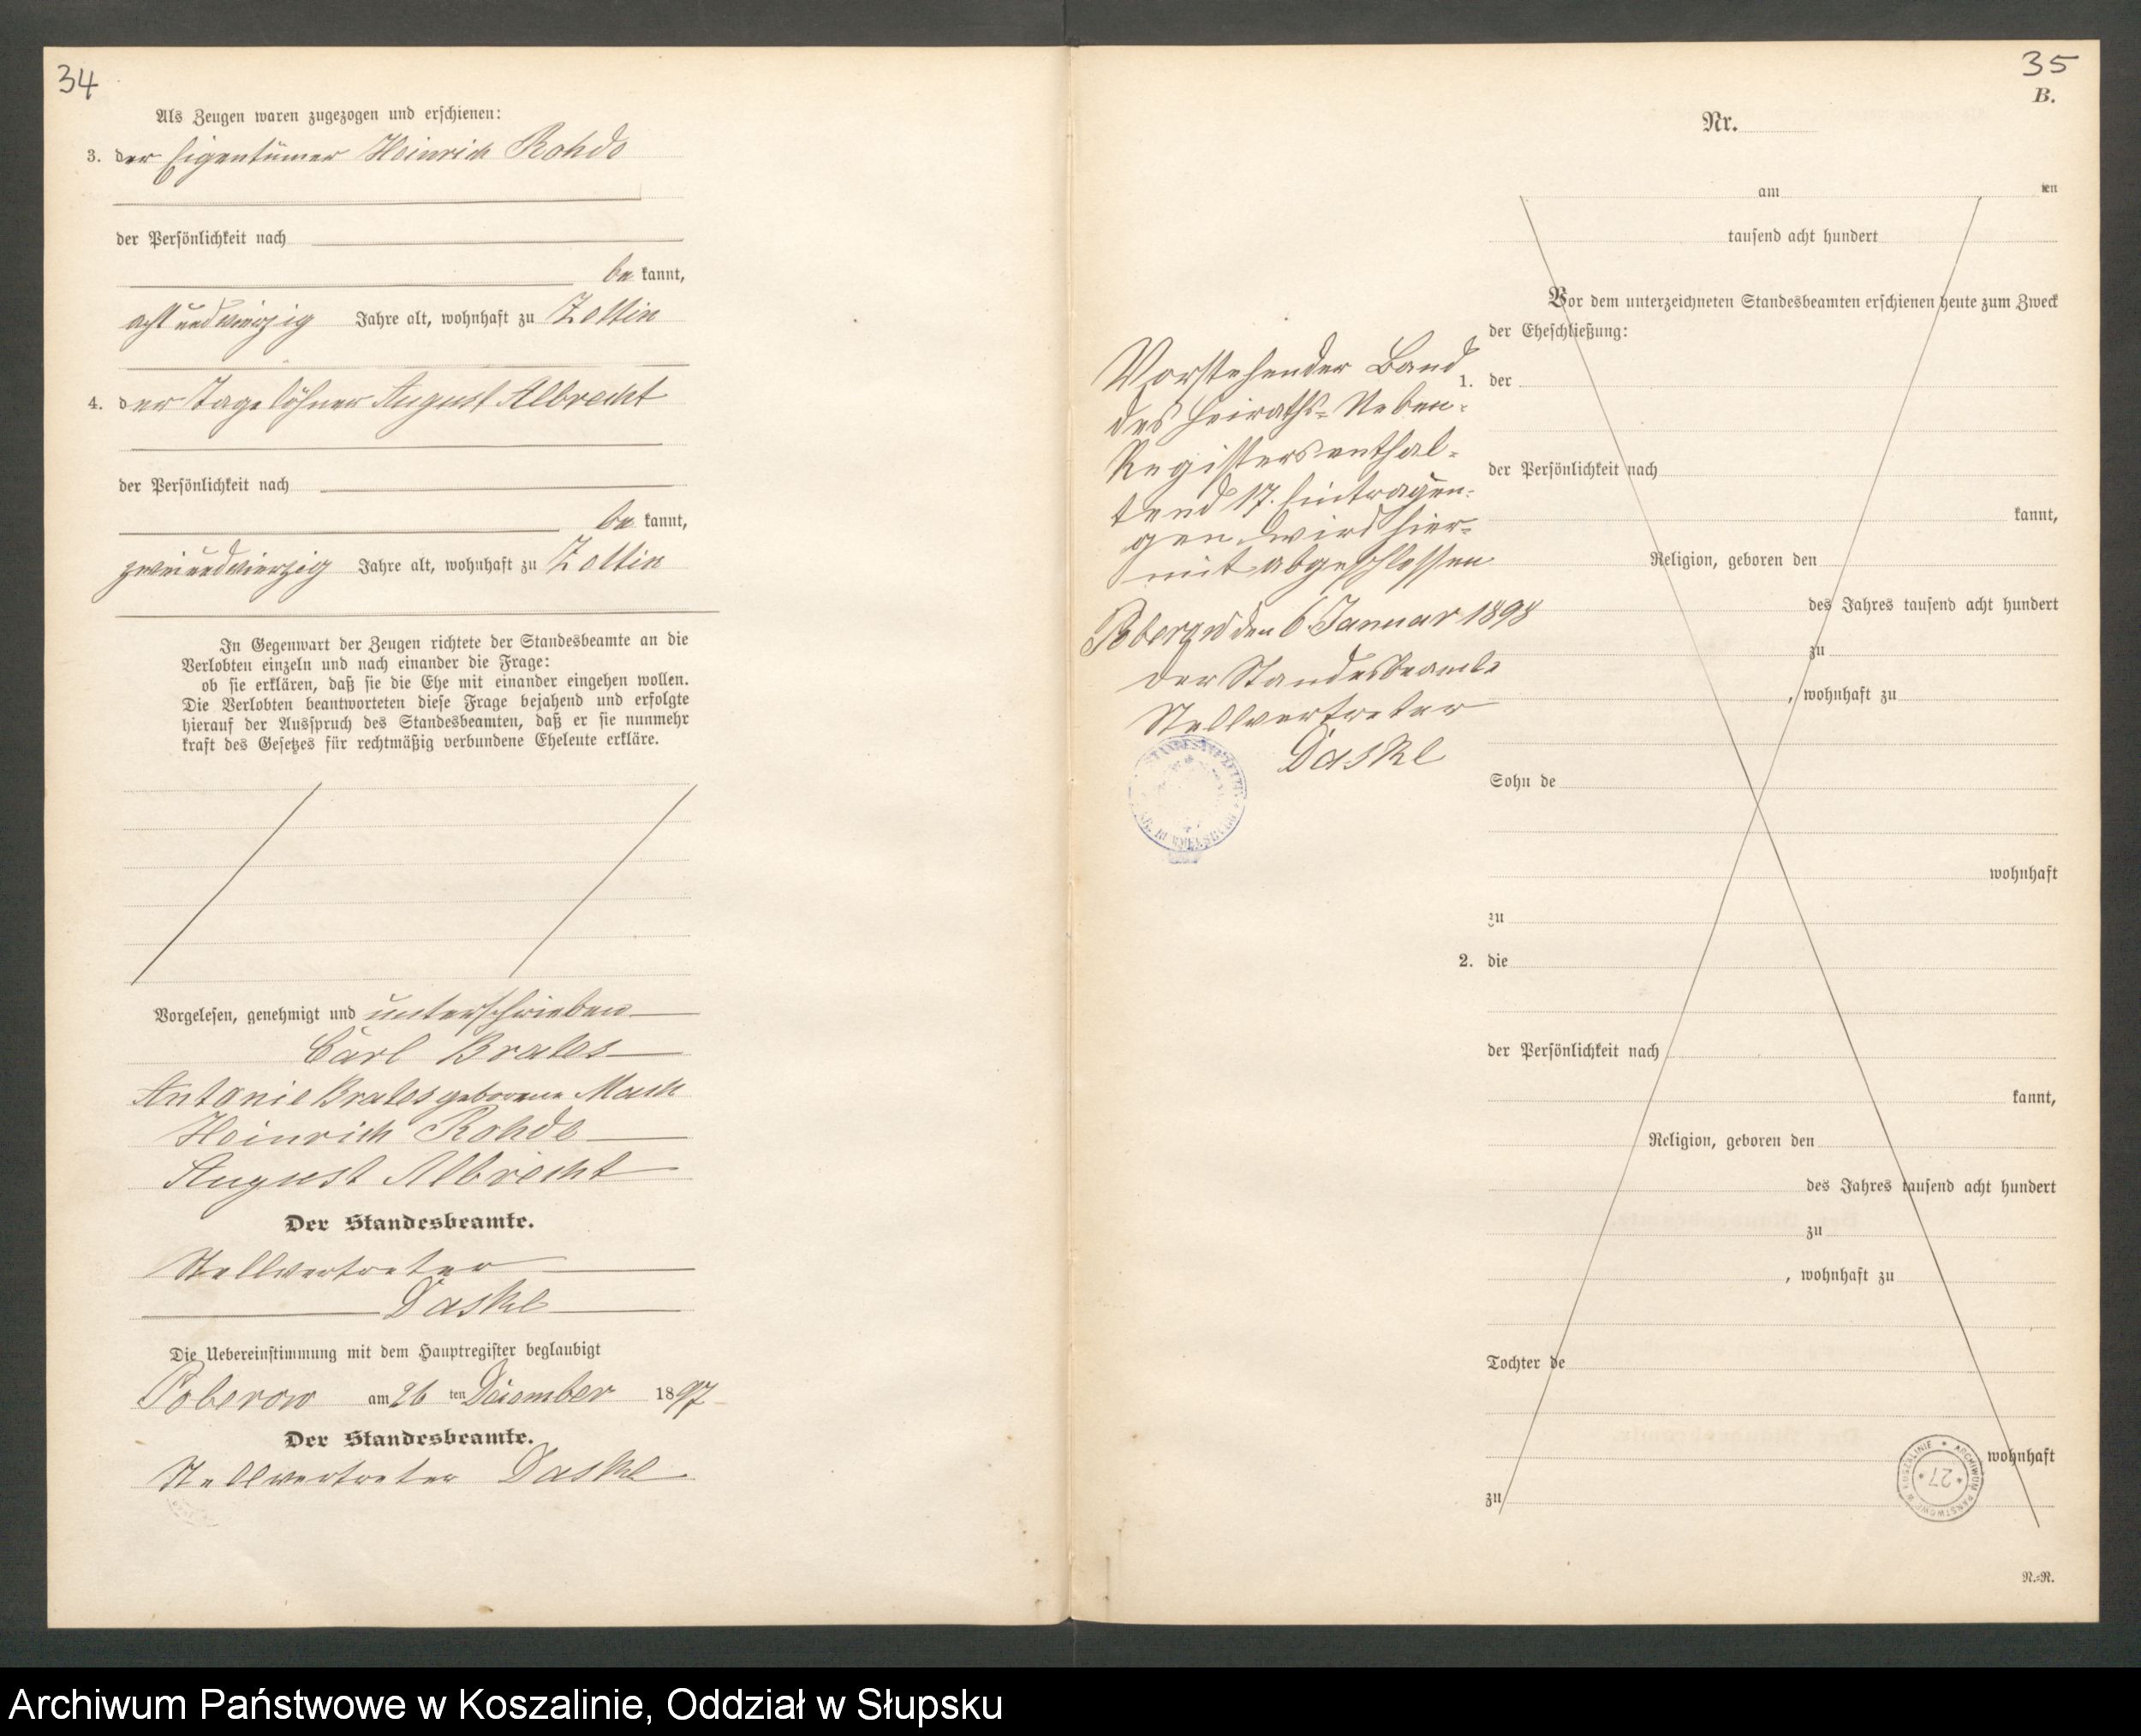 34
Als Zeugen waren zugezogen und erschienen:
3. der Eigentümer Heinrich Rohde
der Persönlichkeit nach
be kannt,
achtundvierzig Jahre alt, wohnhaft zu Zettin
4. der Tagelöhner August Albrecht
der Persönlichkeit nach
be kannt,
zweiundvierzig Jahre alt, wohnhaft zu Zettin
In Gegenwart der Zeugen richtete der Standesbeamte an die
Verlobten einzeln und nach einander die Frage:
ob sie erklären, daß sie die Ehe mit einander eingehen wollen.
Die Verlobten beantworteten diese Frage bejahend und erfolgte
hierauf der Ausspruch des Standesbeamten, daß er sie nunmehr
kraft des Gesetzes für rechtmäßig verbundene Eheleute erkläre.
Vorgelesen, genehmigt und unterschrieben
Carl
Antonie geborene
Heinrich Rohde
August Albrecht
Der Standesbeamte.
Stellvertreter
Daske
Die Uebereinstimmung mit dem Hauptregister beglaubigt
Poberow am 26 ten December 1897
Der Standesbeamte.
Stellvertreter Daske
35
B.
Nr.
am ten
tausend acht hundert
Vor dem unterzeichneten Standesbeamten erschienen heute zum Zweck
der Eheschließung:
1. der
der Persönlichkeit nach
kannt,
Religion, geboren den
des Jahres tausend acht hundert
zu
, wohnhaft zu
Sohn de
wohnhaft
zu
2. die
der Persönlichkeit nach
kannt,
Religion, geboren den
des Jahres tausend acht hundert
zu
, wohnhaft zu
Tochter de
wohnhaft
zu
N.=R.
Vorstehender Band
des Heiraths=Neben=
Registers enthal=
tend 17. Eintragun=
gen wird hier=
mit abgeschlossen
Poberow den 6 Januar 1898
Der Standesbeamte
Stellvertreter
Daske
ARCHIWUM PAŃSTWOWE W KOSZALINIE
27
Archiwum Państwowe w Koszalinie, Oddział w Słupsku